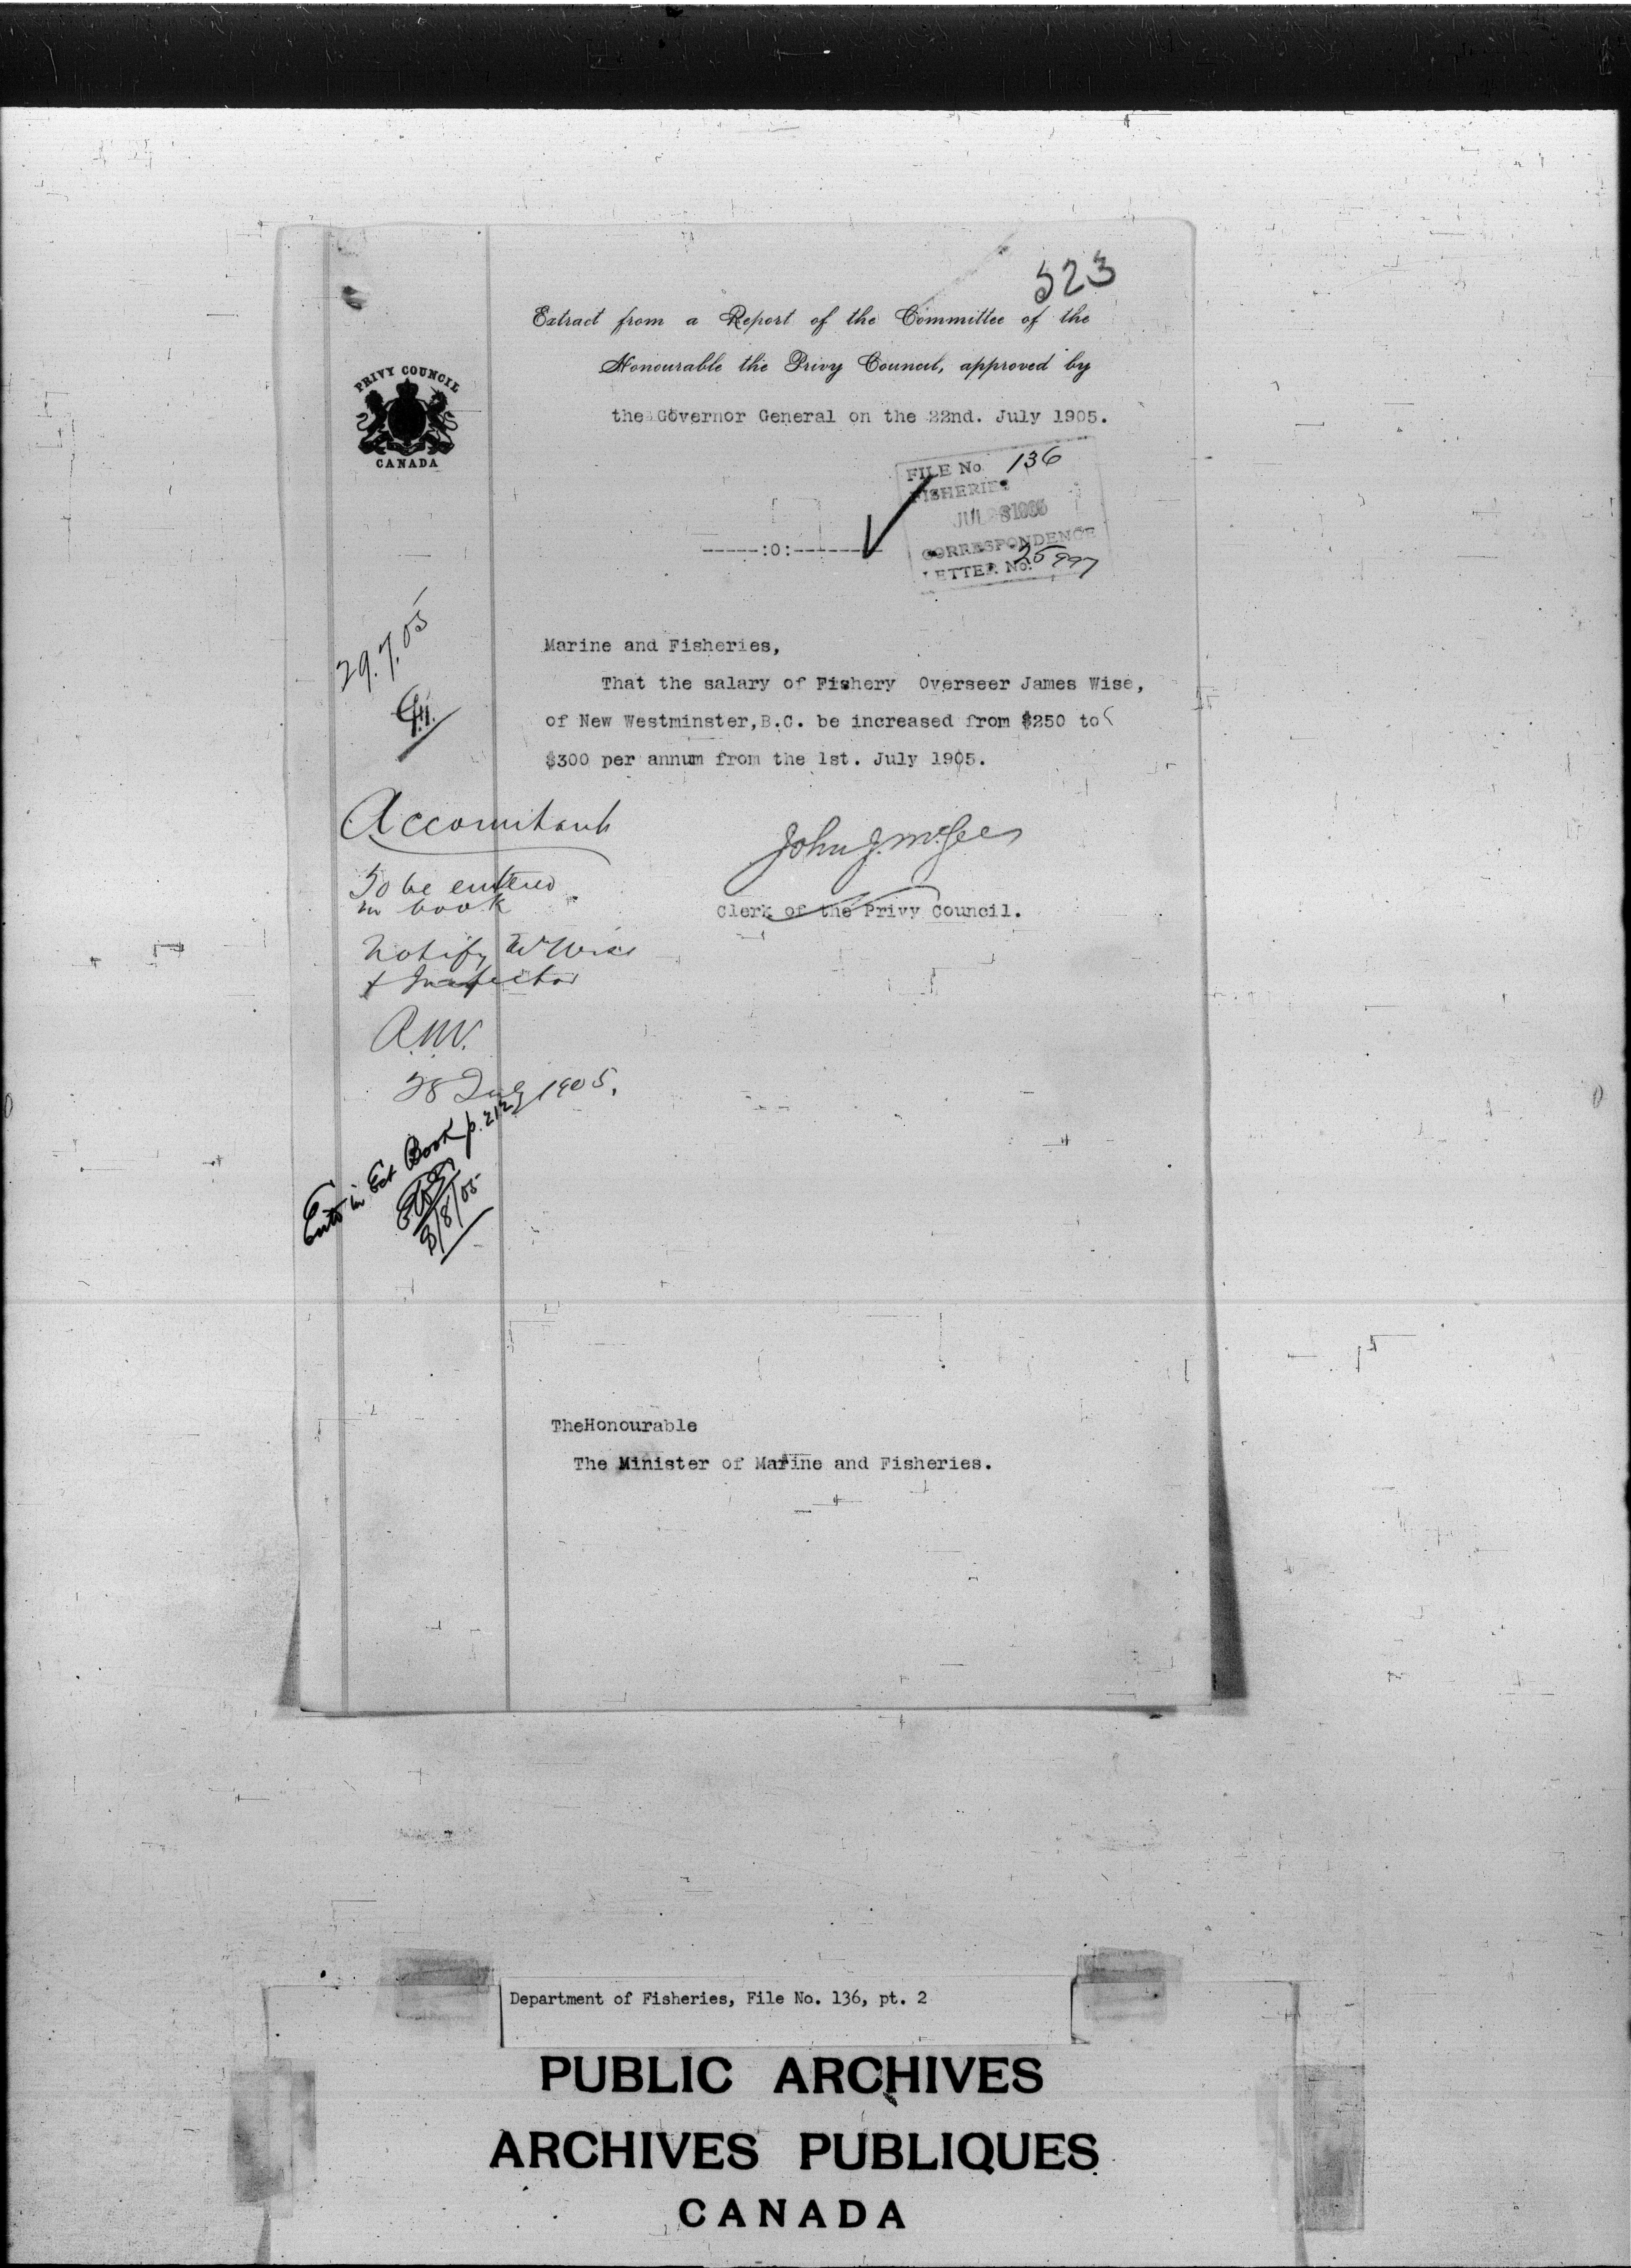 523
Extract from a Report of the Committee of the
Honourable the Privy Council, approved by
the Governor General on the 22nd. July 1905.
PRIVY COUNCIL
CANADA
FILE No 136
FISHERIES
JUL 1905
CORRESPONDENCE
LETTER No.
-----:0:------
29.7.05
Marine and Fisheries,
That the salary of Fishery Overseer James Wise,
of New Westminster,B.C. be increased from $250 to
$300 per annum from the 1st. July 1905.
Accountant
To be entered
in book
Notify Mr Wise
& Inspector
R.N.V.
28 July 1905.
John J. McGee
Clerk of the Privy Council.
Entd in Est Book p. 212
3/8/05
TheHonourable
The Minister of Marine and Fisheries.
Department of Fisheries, File No. 136, pt. 2
PUBLIC ARCHIVES
ARCHIVES PUBLIQUES
CANADA